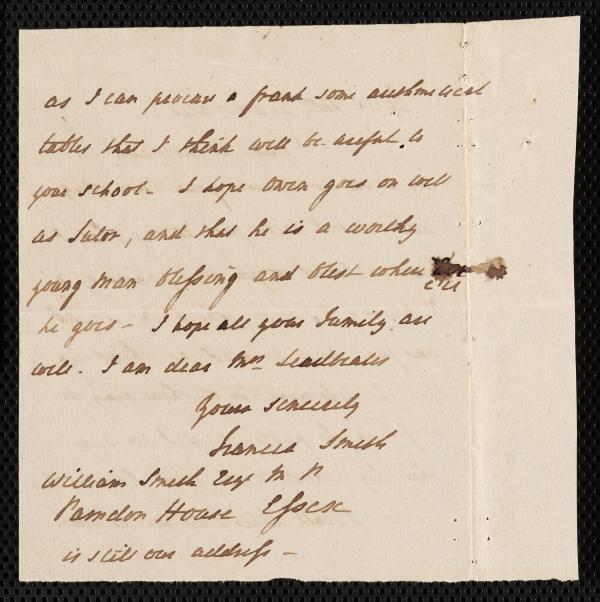 as I can procure a frank some arithmetical
tables that I think will be useful to
your school - I hope Owen goes on well
as Tutor, and that he is a worthy
young man blessing and blest where
e'er
he goes - I hope all your family are
well. I am dear Mrs Leadbeater
Yours sincerely
Frances Smith
William Smith Esqr M P
Parndon House Essex
is still our address -